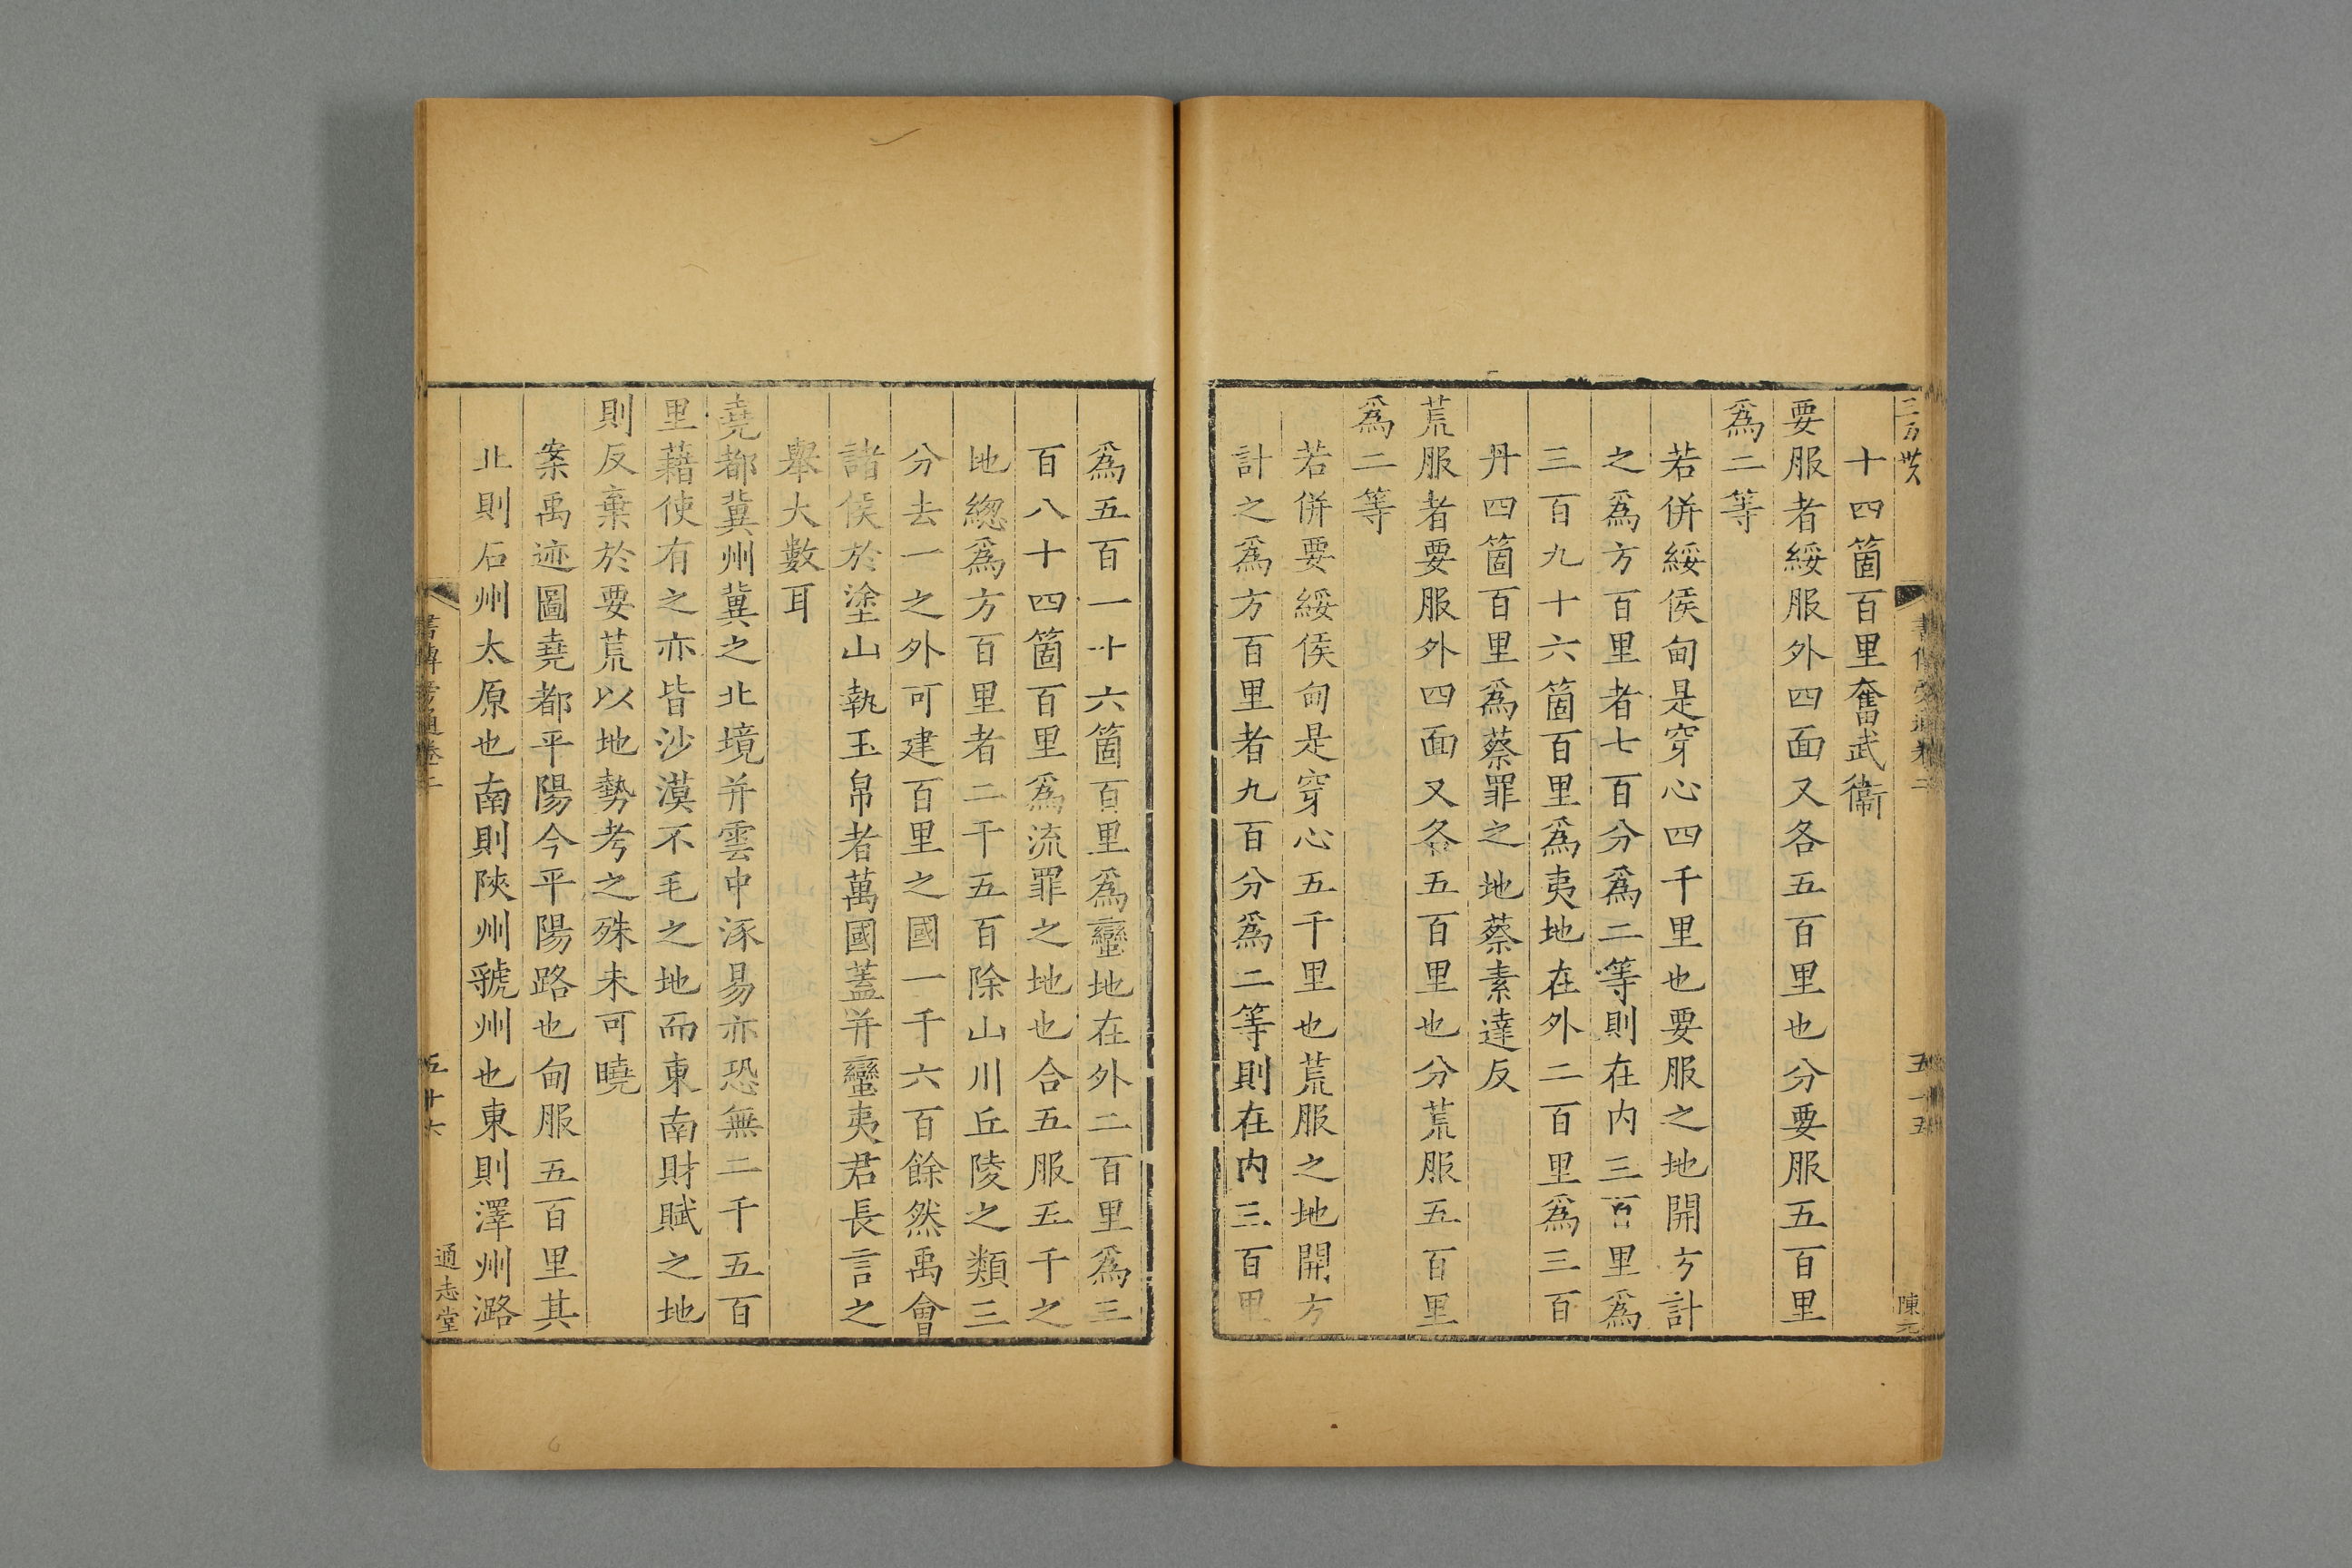 十四箇百里奮武衞
要服者綏服外四面又各五百里也分要服五百里
爲二等
若併綏侯甸是穿心四千里也要服之地開方計
之爲方百里者七百分爲二等則在内三百里爲
三百九十六箇百里爲夷地在外二百里爲三百
丹四箇百里爲蔡罪之地蔡素達反
荒服者要服外四面又各五百里也分荒服五百里
爲二等
若併要綏侯甸是穿心五千里也荒服之地開方
計之爲方百里者九百分爲二等則在内三百里
陳元
爲五百一十六箇百里爲蠻地在外二百里爲三
百八十四箇百里爲流罪之地也合五服五千之
地緫爲方百里者二千五百除山川丘陵之類三
分去一之外可建百里之國一千六百餘然禹會
諸侯於塗山執玉帛者萬國蓋并蠻夷君長言之
舉大數耳
堯都冀州冀之北境并雲中涿易亦恐無二千五百
里藉使有之亦皆沙漠不毛之地而東南財賦之地
則反棄於要荒以地勢考之殊未可曉
案禹迹圖堯都平陽今平陽路也甸服五百里其
北則石州太原也南則陝州虢州也東則澤州潞
書傳旁通卷二
五十六
通志堂